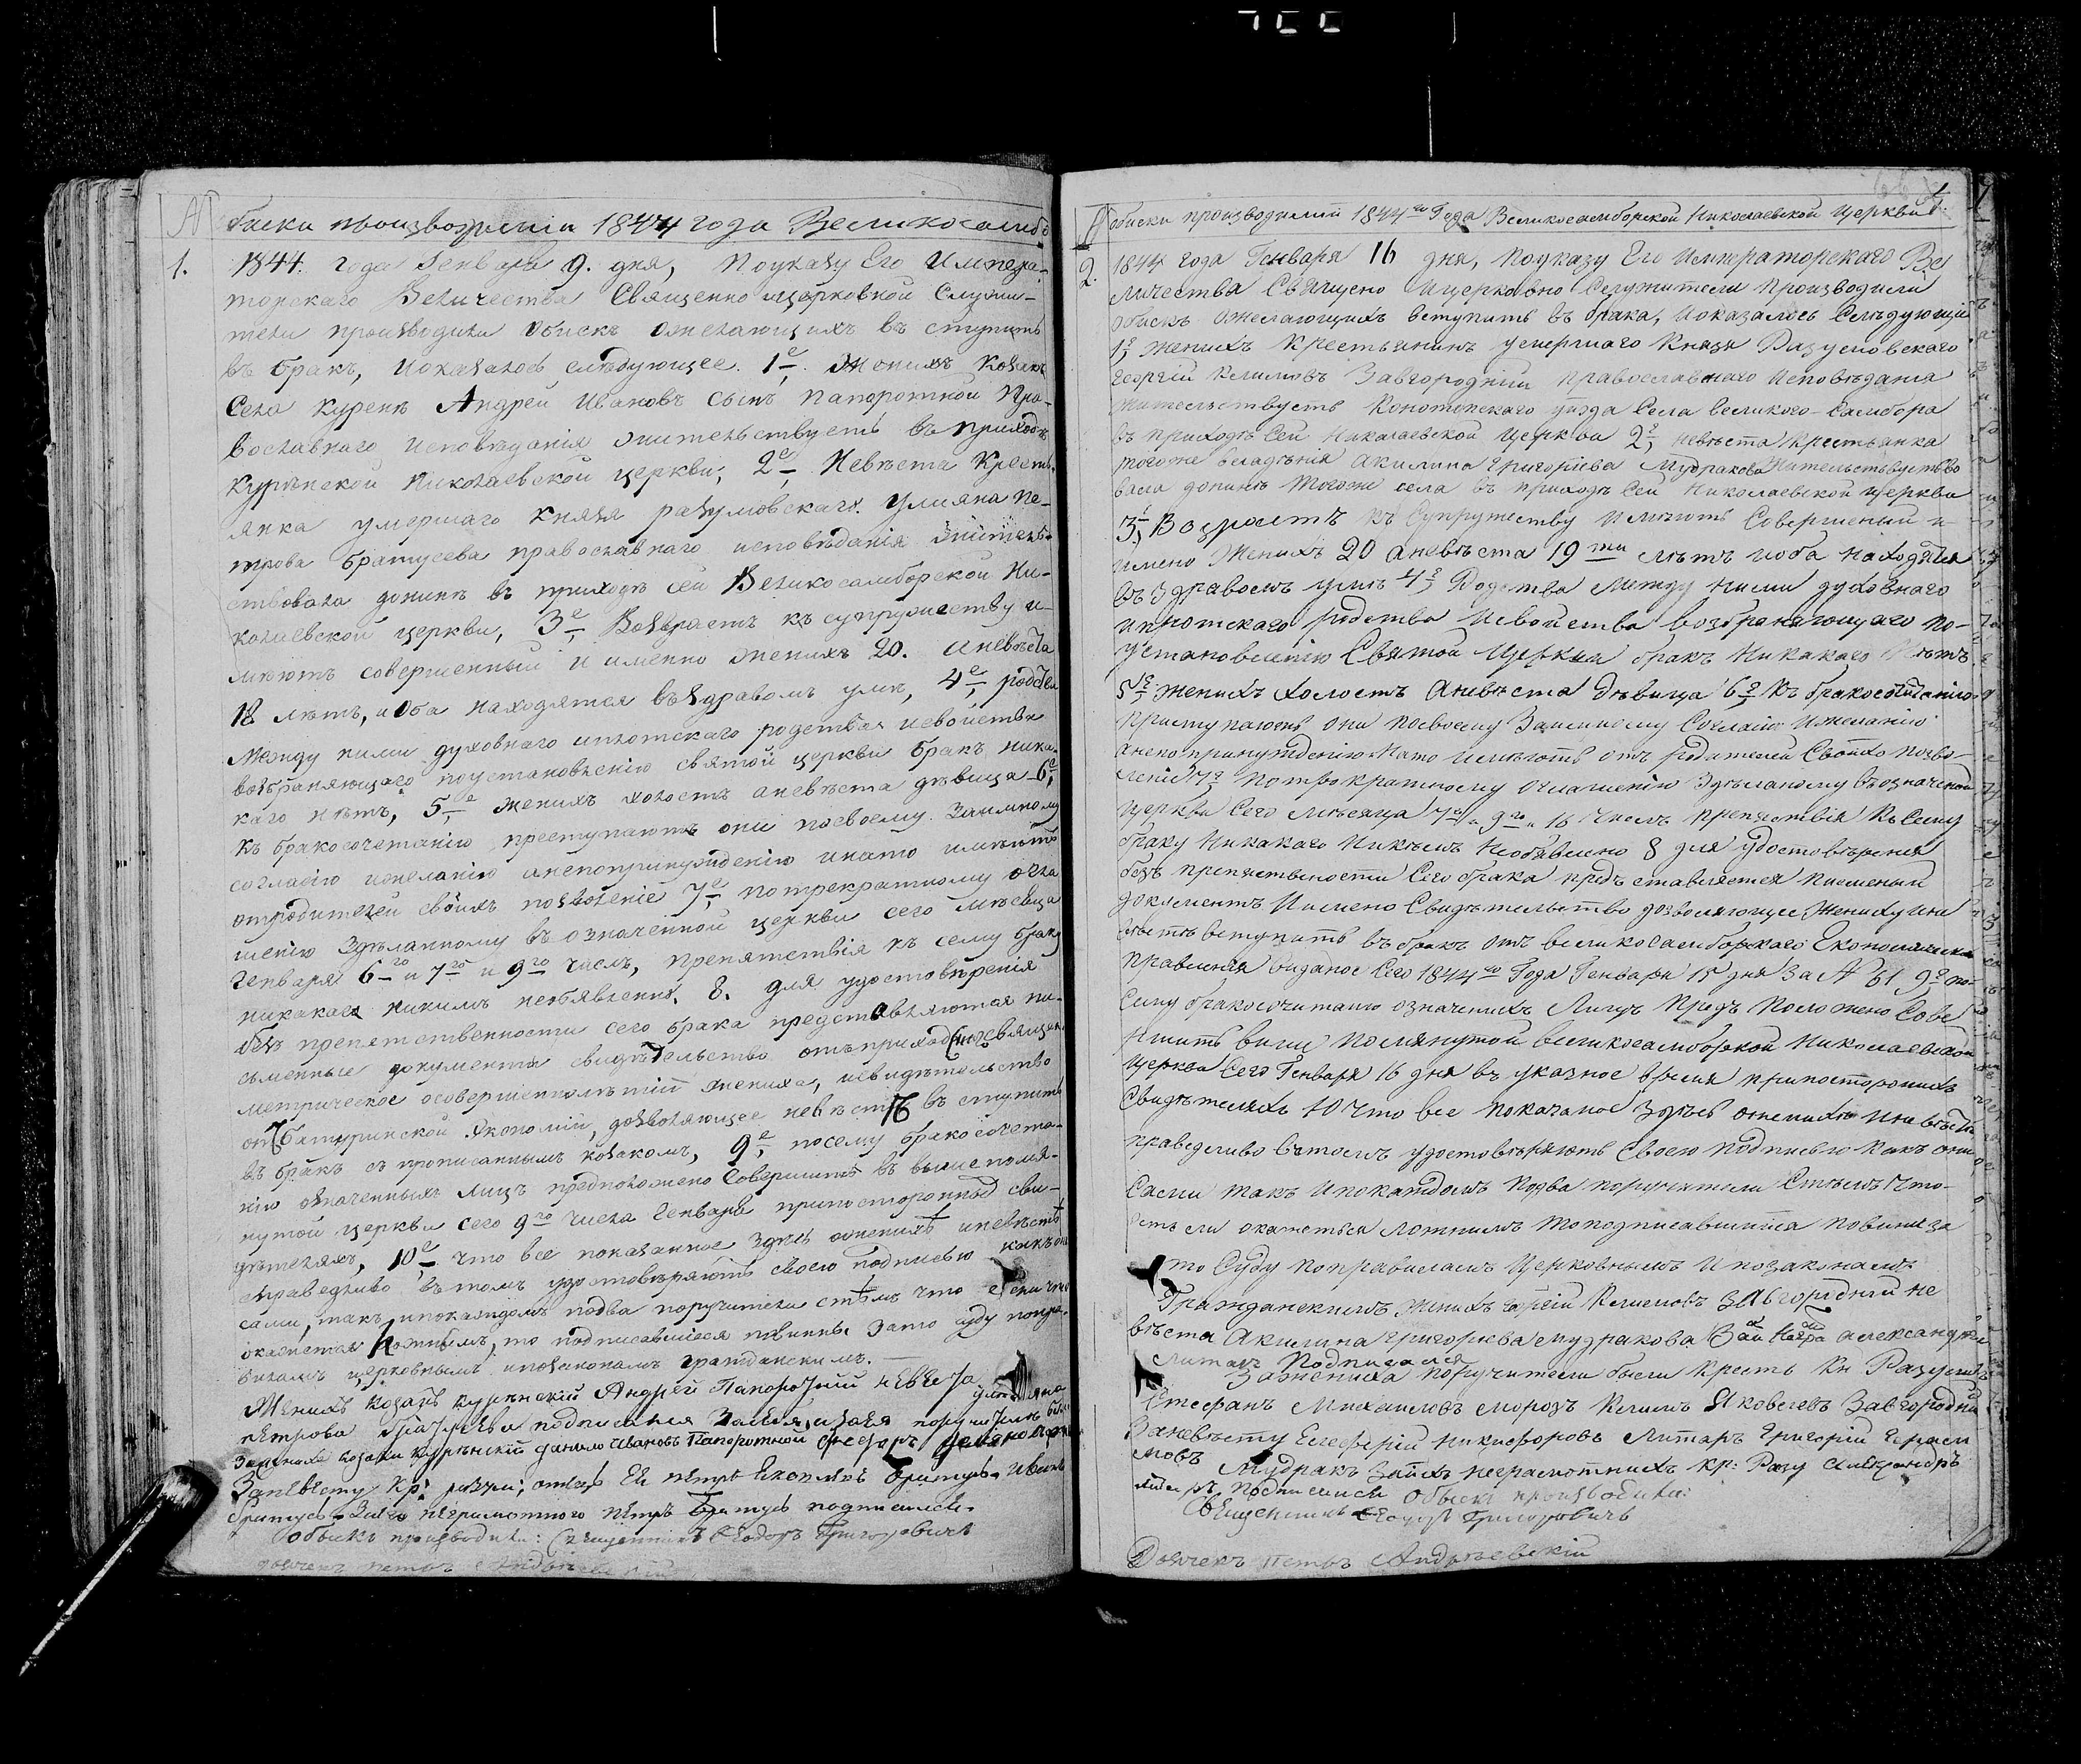 Обиски производимии 1844 года Великосамбо
1. 1844. года Генваря 9. дня, Поуказу Его Импера-
торскаго Величества Священно ицерковной Служи-
тели производили обискъ ожелающихъ въ ступить
въ бракъ, иоказалось слѣдующее. 1е Женихъ Козакъ
Села Куренѣ Андрей Ивановъ сынъ Папоротной Пра-
вославнаго исповѣданія жительствуетъ въ приходѣ
Курѣнской Николаевской церкви; 2е Невѣста Кресть-
янка умершаго Князя разумовскаго. Улияна Пе-
трова братусева православнаго исповѣданія жытель-
ствовала донинѣ въ приходѣ сей Великосамборской Ни-
колаевской церкви, 3е Возврастъ къ супружеству и-
мѣютъ совершенный и именно женихъ 20. аневѣста
18 лѣтъ, иоба находятся въздравомъ умѣ, 4е родства
Между ними духовнаго иплотскаго родства исвойства
возбраняющаго поустановленію святой церкви бракъ ника-
каго нѣтъ, 5е женихъ холостъ аневѣста дѣвица 6е
къ бракосочетанію преступаютъ они посвоему взаимному
согласію ижеланію анепопринужденію инато имѣютъ
отродителей своихъ позволеніе 7е потрекратному огла
шенію здѣланному въ означенной церкви сего мѣсяца
Генваря 6го и 7го и 9го числъ, препятствія къ сему браку
никакаго никимъ необявлено. 8. для удостовѣренія
безъ препятственности сего брака представляются пи-
сьменные документы свидѣтельство отъприходскаго священ
метрическое осовершеннолѣтій жениха, исвидѣтельство
отъ Батуринской Економіи, дозволяющее невѣстѣ въ ступить
въ бракъ съ прописаннымъ козакомъ, 9е посему бракосочета-
нію означенныхъ лицъ предположено Совершить въ вышепомя-
нутой церкви сего 9го числа Генваря припостороннихъ сви-
дѣтеляхъ, 10е что все показанное здѣсь ожених иневѣстѣ
справедливо въ томъ удостовѣряютъ своею подписью какъ они
сами, такъ ипокаждомъ подва поручители стѣмъ что если что
окажется ложнымъ, то подписавшіеся повинны зато суду попра-
виламъ церковнымъ ипозаконамъ гражданскимъ.
Женихъ козакъ курѣнскій Андрей Папоротній невеста улияна
петрова братусева подписался
Зажениха козаки курѣнскій данило Ивановъ Папоротной
Заневѣсту Кр: разум; отецъ Ей петръ братусь Иванъ
братусь Занего неграмотного петръ братусь подписался
Обыскъ производили: Священникъ Ѳеодоръ Григоровичъ
дьячекъ петръ Андріевскій
Обиски производимий 1844го Года Великосамборской Николаевской Церкви
2. 1844 года Генваря 16 дня, Поуказу Его Императорскаго Ве
личества Священо Ицерковно Служители Производили
обискъ ожелающихъ вступить въ брака, иоказалось Слѣдующи
1е Женихъ Крестьянинъ умершаго Князя Разумовскаго
Георгій Климовъ Завгородній православнаго исповѣданія
жительствуетъ Конотопскаго уѣзда Села Великого-Самбора
въ приходѣ Сей Николаевской Церкви 2е невѣста Крестьянка
тогоже владѣнія Акилина Григоріева Мудракова Жительствуетъво
вала донинѣ тогоже села въ приходѣ Сей Николаевской церкви
3е Возростъ къ Супружеству Имѣютъ Совершеный и
имено Женихъ 20 аневѣста 19ти лѣтъ иоба находятся
въ здравомъ умѣ 4е Родства Между ними духовнаго
иплотскаго родства исвойства возбраняющаго по-
установленію Святой Церкви бракъ Никакаго Нѣтъ
5е женихъ холостъ аневѣста дѣвица 6е къ бракосочитанію
приступаютъ они посвоему Заимному Согласію Ижеланію
анепопринуждению инато имѣютъ отъ родителей Своихъ позво-
леніе 7е потрократному Оглашенію здѣланому въозначеной
церкви Сего мѣсяца 7го 9го и 16 Числъ препятствія Къ Сему
браку Никакаго Никѣмъ Необявлено 8 для удостовѣренія
безъ препятствености Сего брака представляется писменый
документъ Имено Свидѣтельство дозволяющее Жениху ине
вѣстѣ вступить въ бракъ отъ великосамборскаго Економическа
правленія виданое Сего 1844го Года Генваря 15 дня За № 61 9е по-
Сему бракосочитанію означенихъ Лицъ предъ Положено Сове
ршить више помянутой великосамборской Николаевской
церкви Сего Генваря 16 дня въ указное время припосторонихъ
Свидѣтеляхъ 10 Что все показаное Здѣсь ожених иневѣстѣ
праведливо вътомъ удостовѣряютъ Своею подписью какъ они
Сами такъ Ипокаждомъ подва поручители Стѣмъ Что-
есть ли окажеться ложнимъ Топодписавшиися повини за
то Суду поправиламъ Церковнымъ Ипозаконамъ
Гражданскимъ Женихъ Горгій Климовъ Завгородний не
вѣста Акилина Григорева мудракова Заи Негра александръ
Литар Подписался
Зажениха поручители были Кресть Кн Разум
Стефанъ Михаиловъ морозъ Климъ Яковлевъ Завгородни
Заневѣсту Елеферій Никифоровъ Литаръ Григорій Гераси
мовъ Мудракъ Заихъ неграмотнихъ кр: Разу александръ
литаръ подписался Обыскъ производили:
Священникъ Ѳеодоръ Григоровичъ
Дьячекъ Петръ Андріевскій